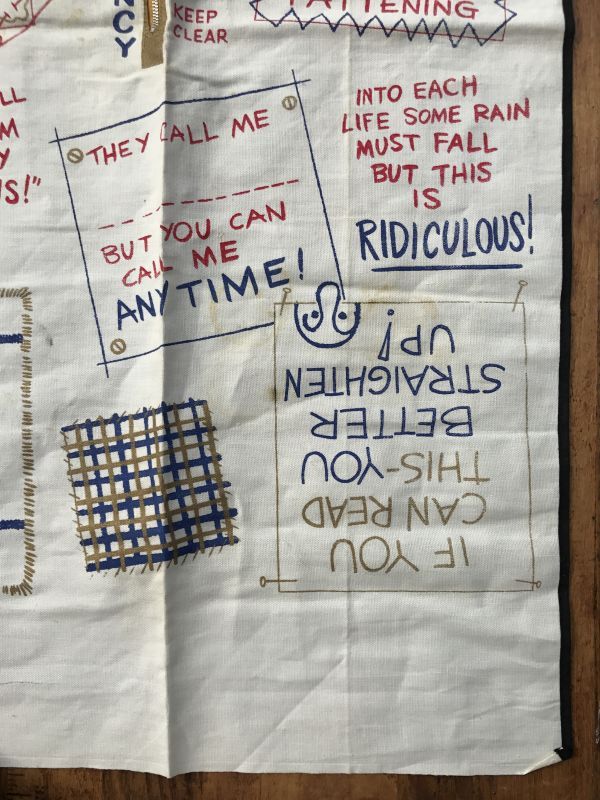 NCY
KEEP
CLEAR
FATTENING
LL
M
Y
S!"
THEY CALL ME
BUT YOU CAN
CALL ME
ANYTIME!
INTO EACH
LIFE SOME RAIN
MUST FALL
BUT THIS
IS
RIDICULOUS!
IF YOU
CAN READ
THIS-YOU
BETTER
STRAIGHTEN
UP!